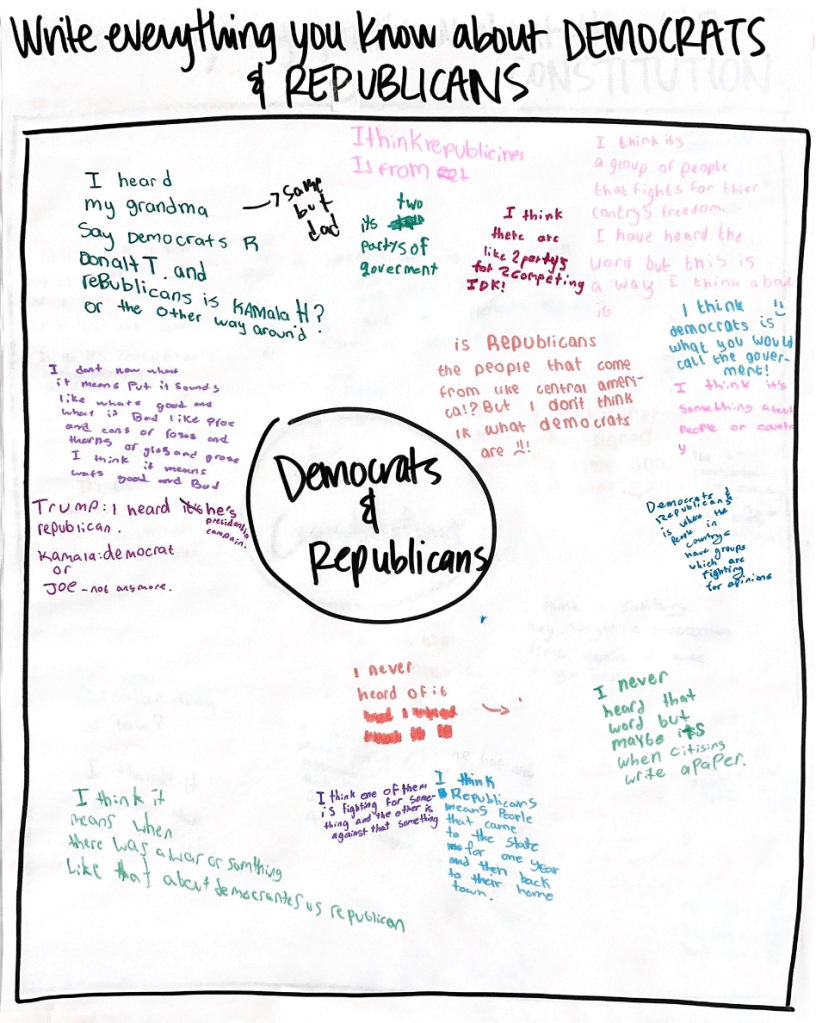 Write everything you know about DEMOCRATS
& REPUBLICANS
I heard
my grandma
Say Democrats R
Donalt T. and
reBublicans is KAMala H?
or the other way around
→ Same
but
dad
I think republicines
Is From
its two
partys of
goverment
I think
there are
like 2 partys
for 2 competing
IDK!
I think its
a group of people
that fights for thier
cantry's freedom.
I have heard the
word but this is
a way I think about
it
I think
democrats is
what you would
call the gover-
ment!
I think it's
something about
people or
is Republicans
the people that come
from like central ameri-
ca!? But I don't think
ik what democrats
are !!
I dont now what
it means Put it sounds
like whats good and
what is Bad like Proe
and cons or roses and
thorns or glos and grose
I think it means
wats good and Bud
Trump: I heard he's
republican. presidential campain.
Kamala: democrat
or
JOE - not anymore.
Democrats
&
Republicans
Democrats &
Republicans
is when the
in
countrys
have groups
which are
fighting
for opinions
I never
heard of it
→
I never
heard that
word but
maybe its
when citising
write apaper.
I think it
means when
there was a war or somthing
Like that about democrantes vs republican
I think one of them
is fighting for some-
thing and the other is
against that something
I think
Republicans
means People
that came
to the state
for one year
and then back
to their home
town.